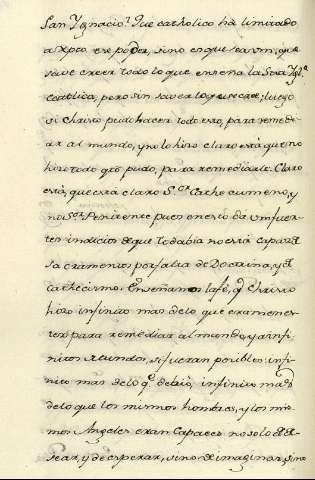 San Ygnacio? Que catholico ha limitado
a Xpto ese poder, sino es que sea vm, que
save creer todo lo que enseña la Sta Ygla
Catolica, pero sin saver lo que cree; luego
si Christo pudo hacer todo esso, para remedi
ar al mundo, y no lo hizo claro está que no
hizo todo qto pudo, para remediarle. Claro
está, que está claro Sor Cathecumeno, y
no Sor Penitente pues en esto da vm fuer
tes indicios de que todabia no está capaz de
sacramentos por falta de Doctrina, y de
cathecismo. Enseñamos la fé, q Christo
hizo infinito mas de lo que era menes
ter para remediar al mundo, y a infi
nitos Mundos, si fueran posibles infi
nito mas de lo q debió, infinito mas
de lo que los mismos hombres, y los mis
mos Angeles eran Capaces no solo de de
sear, y de esperar, sino de imaginar; sino